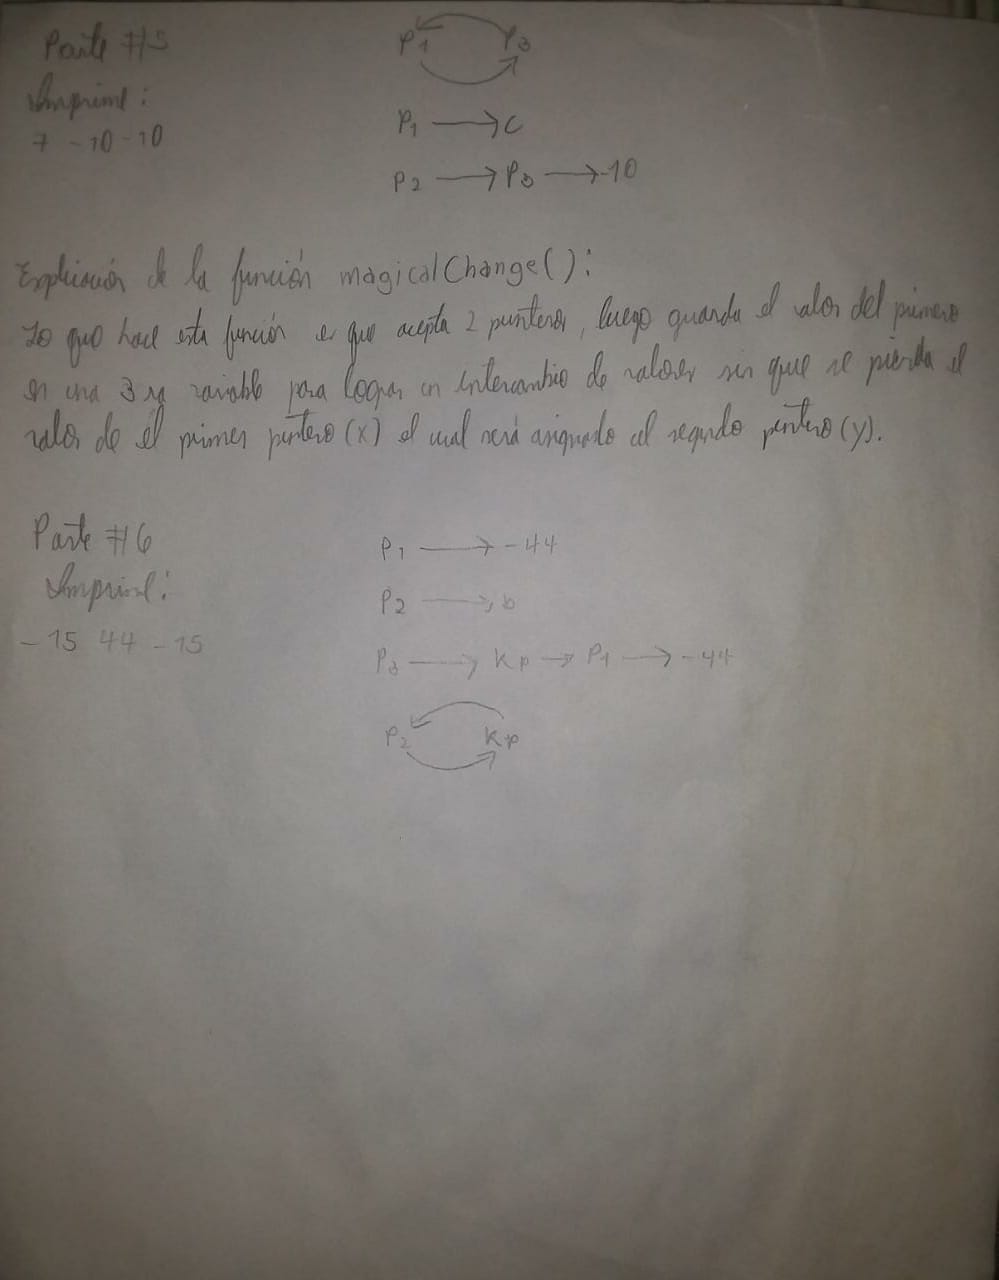 Parte #5
P1 P3
Imprime:
7 -10 -10
P1 → C
P2 → P3 → -10
Explicación de la función magicalChange():
Lo que hace esta función es que acepta 2 punteros, luego guarda el valor del primero
en una 3ra variable para lograr un intercambio de valores sin que se pierda el
valor de el primer puntero (x) el cual será asignado al segundo puntero (y).
Parte #6
P1 → -44
Imprime:
P2 → b
-15 44 -15
P3 → Kp → P1 → -44
P2 Kp